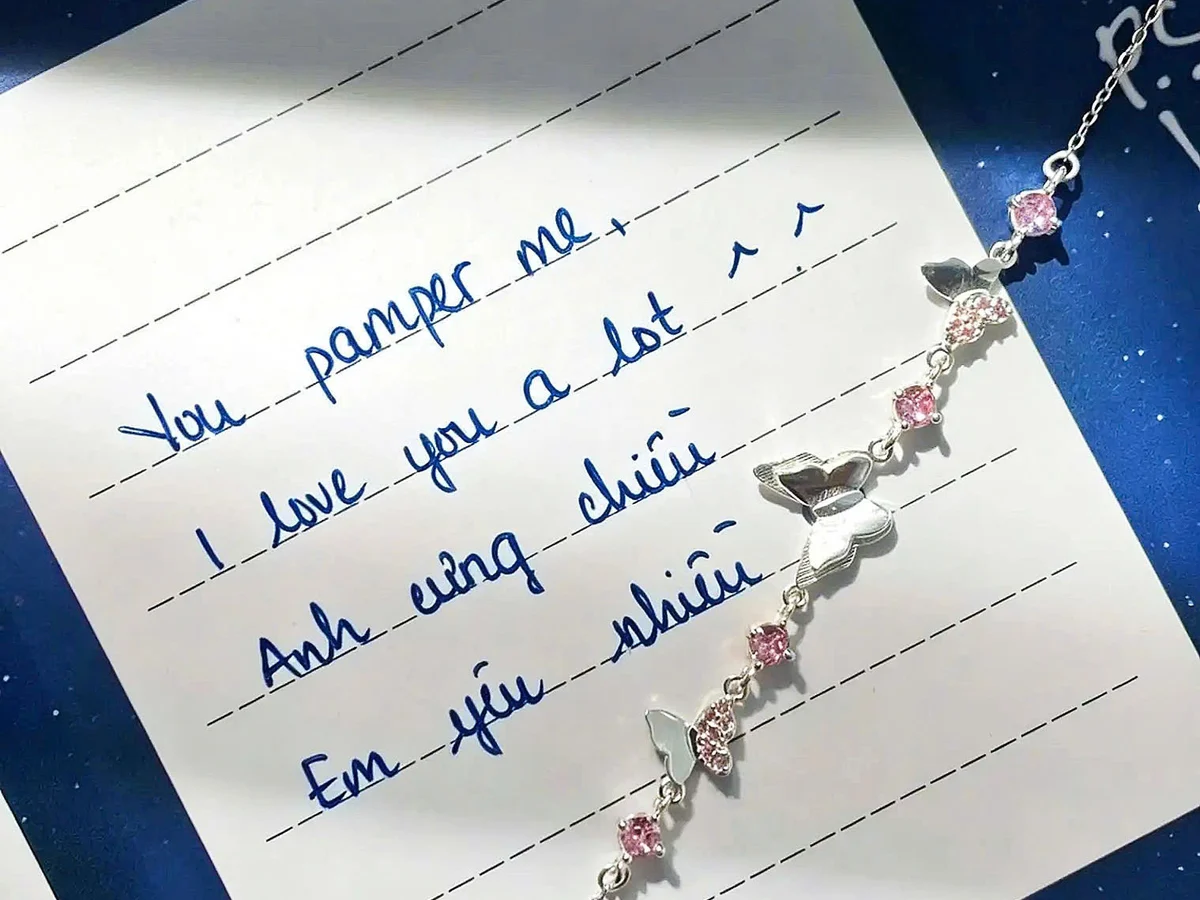 You pamper me,
I love you a lot ^ ^
Anh cưng chiều
Em yêu nhiều